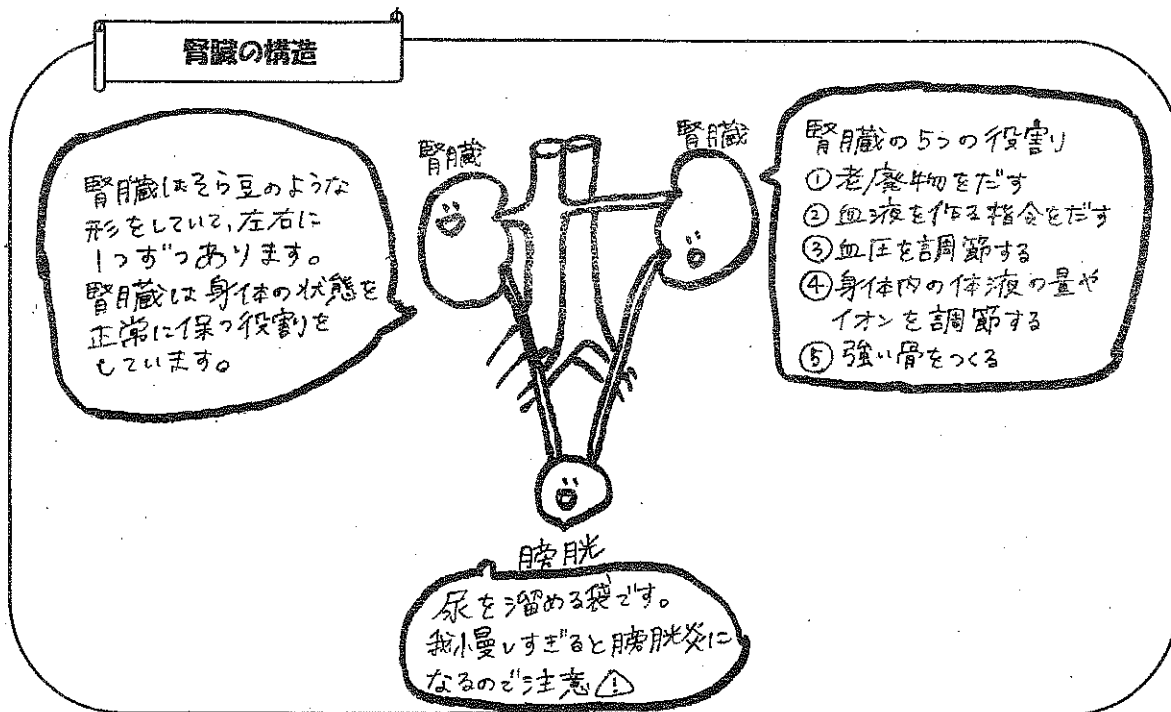 腎臓の構造
腎臓
腎臓
腎臓はそら豆のような
形をしていて、左右に
1つずつあります。
腎臓は身体の状態を
正常に保つ役割を
しています。
腎臓の5つの役割り
①老廃物をだす
②血液を作る指令をだす
③血圧を調節する
④身体内の体液の量や
イオンを調節する
⑤強い骨をつくる
膀胱
尿を溜める袋です。
我慢しすぎると膀胱炎に
なるので注意⚠